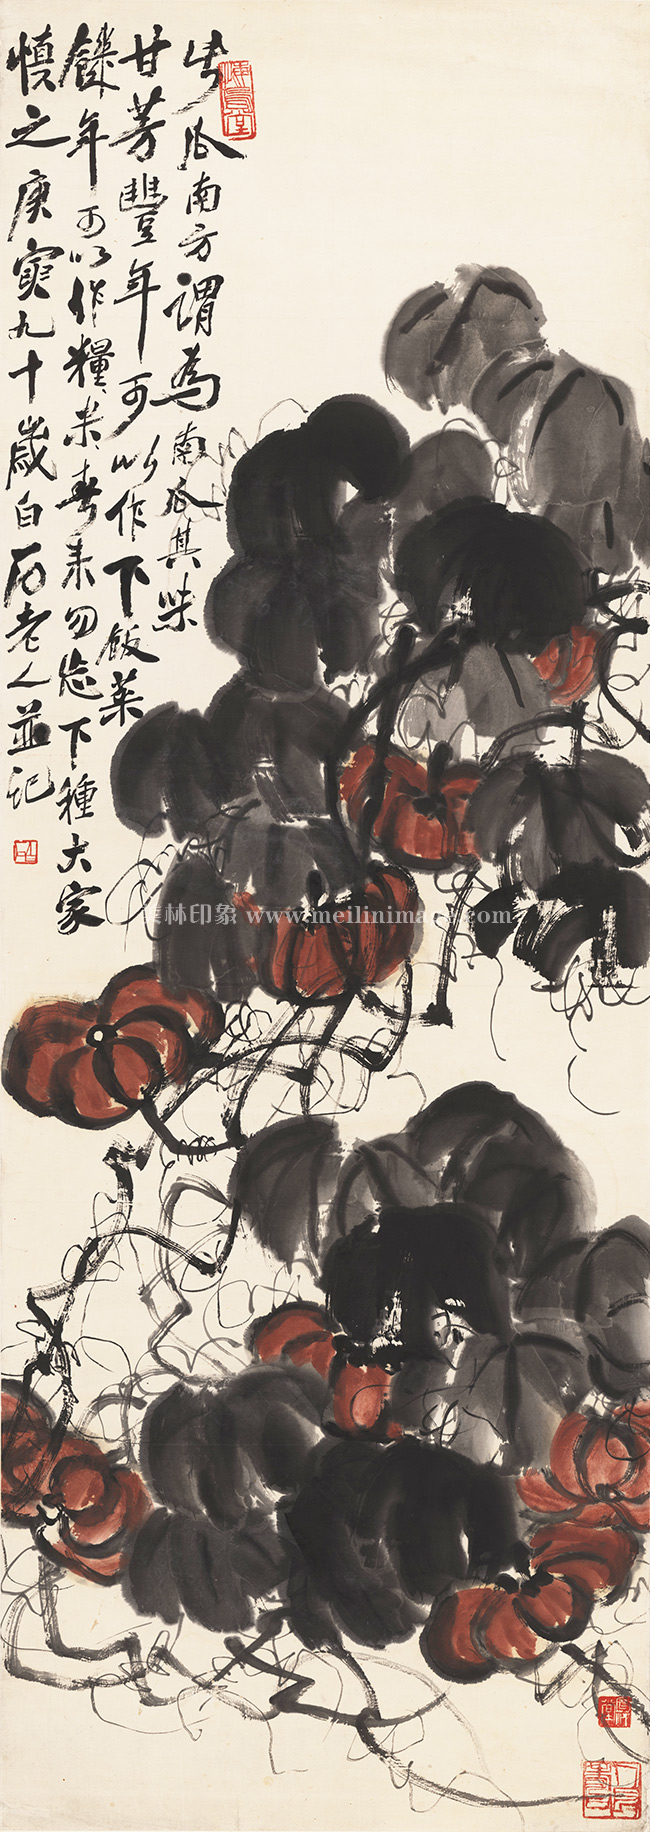 此瓜南方謂為南瓜其味
甘芳豐年可以作下飯菜
饑年可以作糧米春来勿忘下種大家
慎之庚寅九十歲白石老人並記
美林印象 www.meilinimage.com